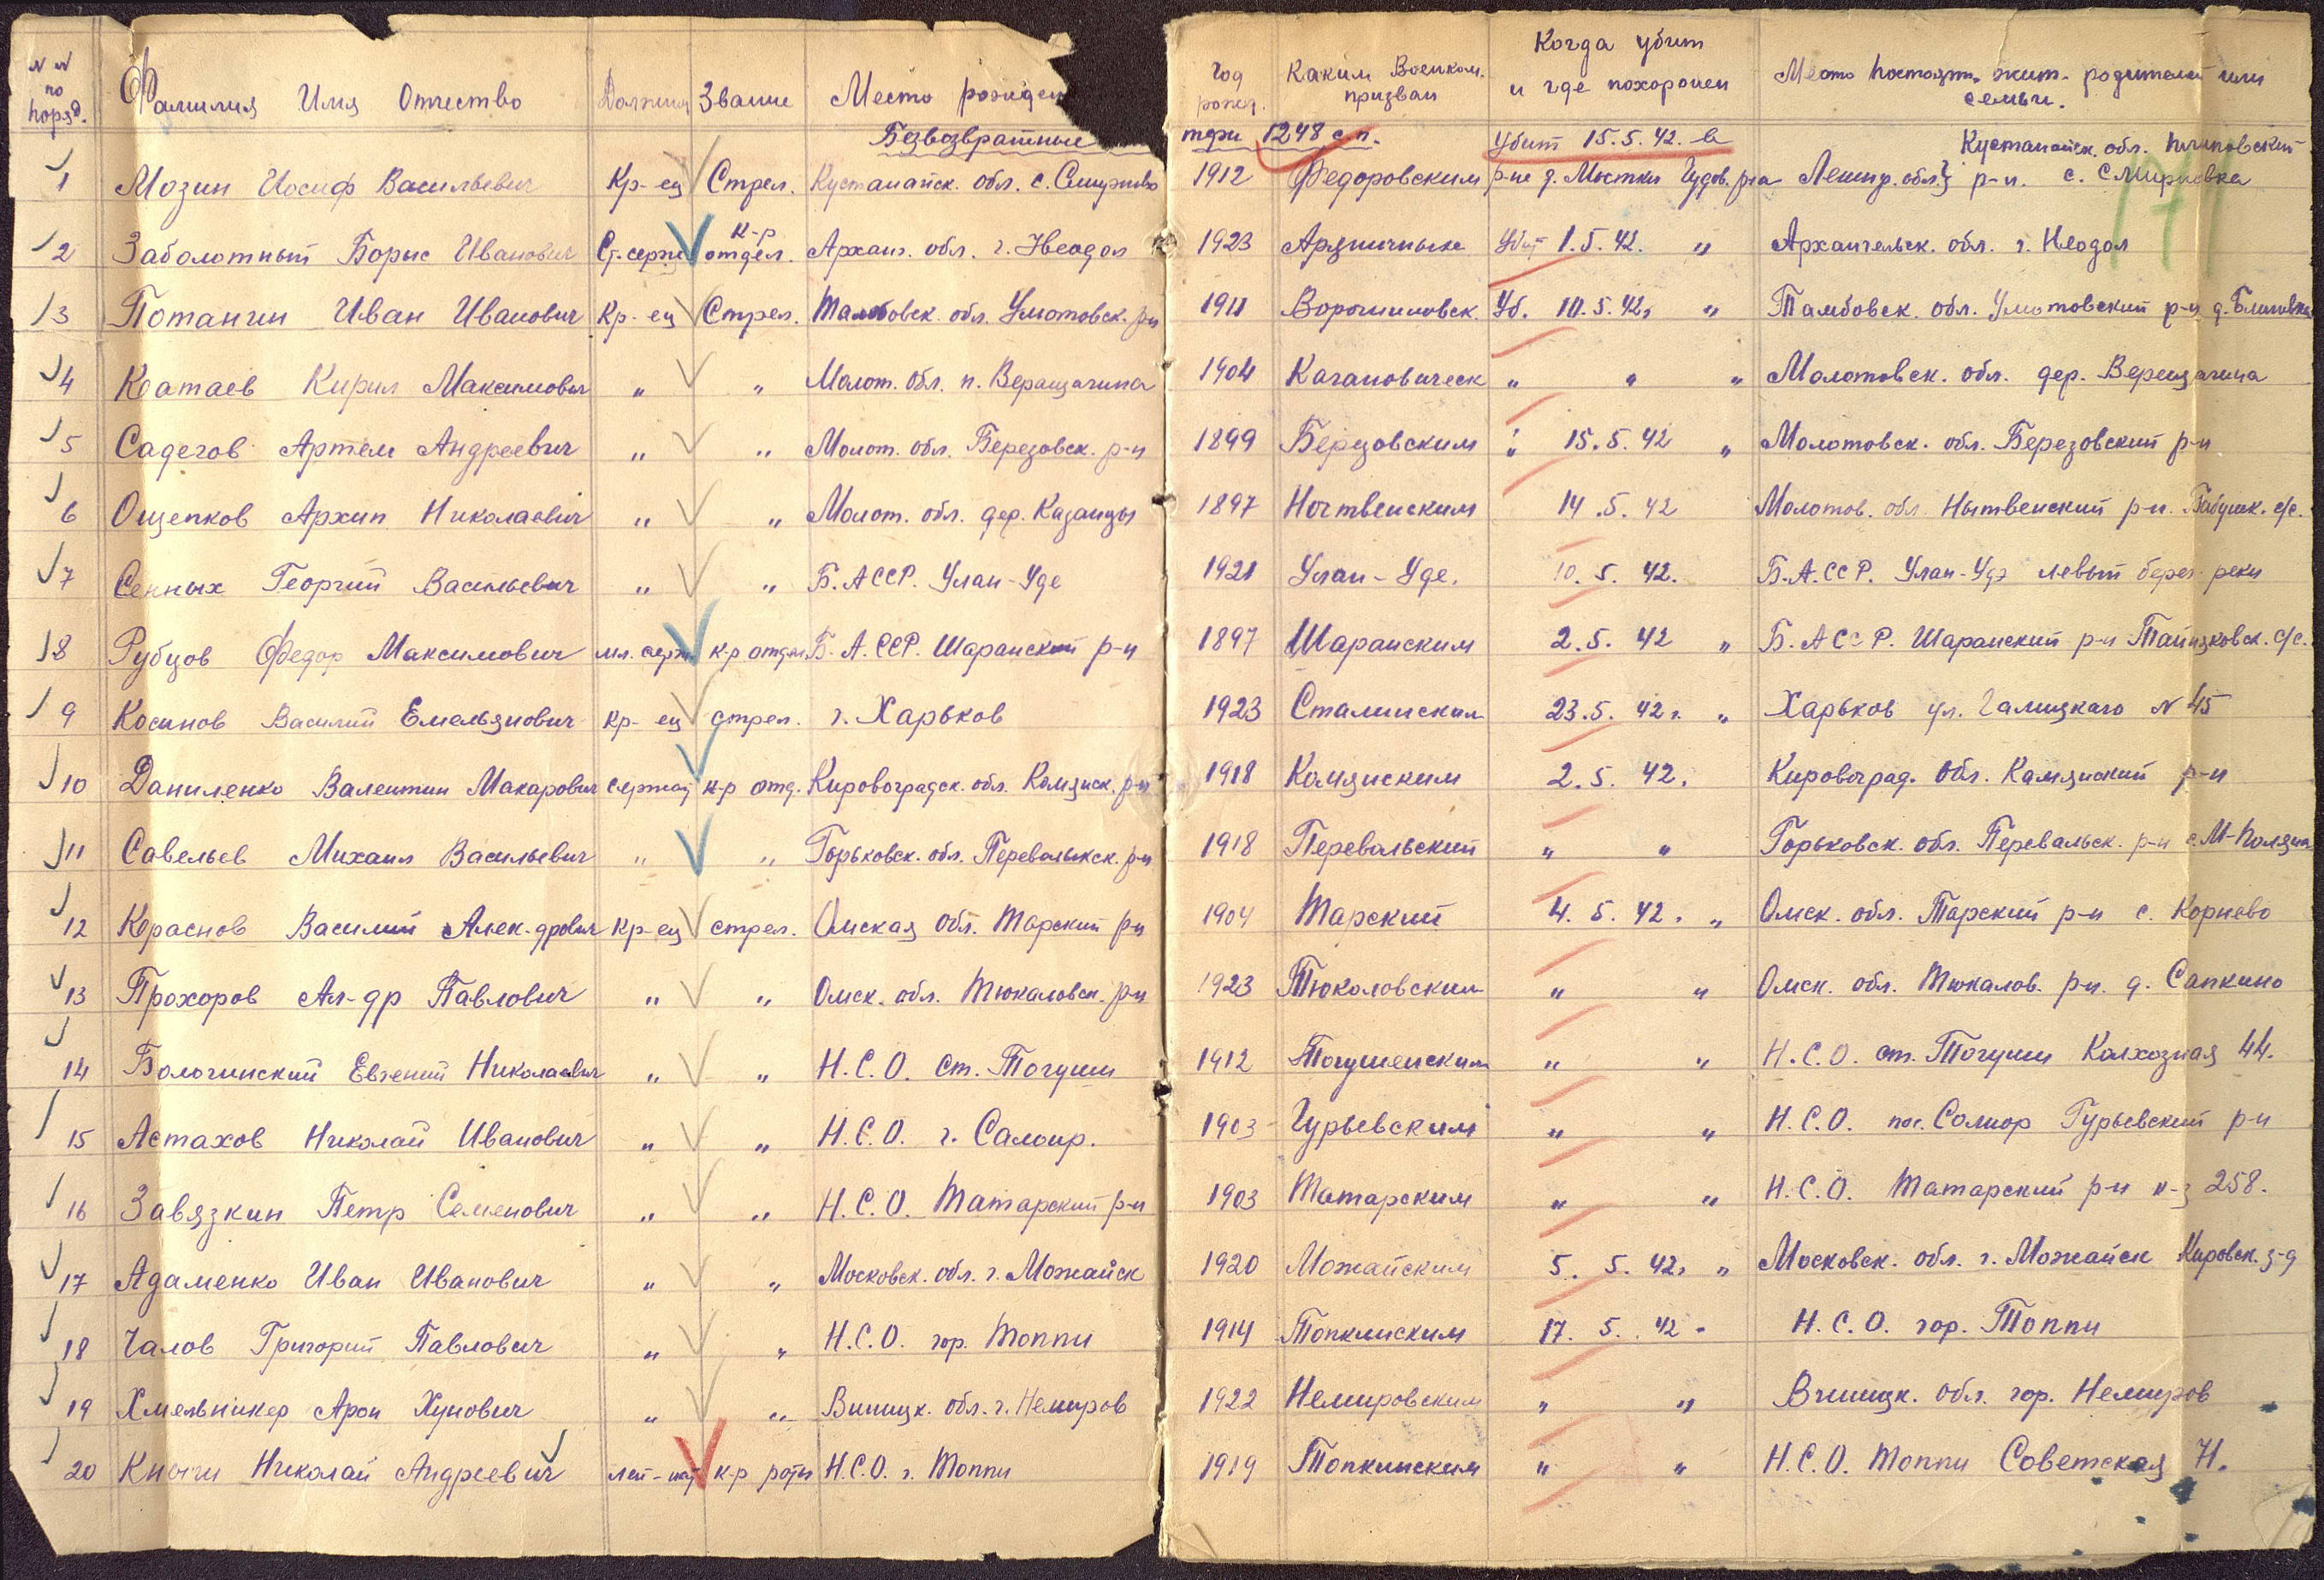 № № по поряд. Фамилия Имя Отчество Должно Звание Место рожден Год рожд. Каким Военком. призван Когда убит и где похоронен Место постоян. жит. родителей или семьи.
Безвозвратные 1248 с.п.
1 Мозин Иосиф Васильевич Кр-ец Стрел. Кустанайск. обл. с. Смирново 1912 Федоровским Убит 15.5.42. в р-не д. Мостки Чудов. р-на Ленингр. обл. Кустанайск. обл. р-н. с. Смирновка
2 Заболотный Борис Иванович Ст. серж к-р отдел. Арханг. обл. г. Неодол 1923 Убит 1.5.42. " Архангельск. обл. г. Неодол
3 Потангин Иван Иванович Кр-ец Стрел. Тамбовск. обл. Уметовск. р-н 1911 Ворошиловск. Уб. 10.5.42. " Тамбовск. обл. Уметовский р-н д.
4 Коатаев Кирил Максимович " " Молот. обл. п. Верещагина 1904 Кагановическ " " " Молотовск. обл. дер. Верещагина
5 Садегов Артем Андреевич " " Молот. обл. Березовск. р-н 1899 Березовским " 15.5.42 " Молотовск. обл. Березовский р-н
6 Ощепков Архип Николаевич " " Молот. обл. дер. Казанцы 1897 Ночтвенским 14.5.42 Молотов. обл. Нытвенский р-н. Бабушк. с/с.
7 Сенных Георгий Васильевич " " Б. АССР. Улан-Уде 1921 Улан-Уде. 10.5.42. Б.А.ССР. Улан-Удэ левый берег реки
8 Рубцов Федор Максимович мл. серж к-р отдел Б. А. ССР. Шаранский р-н 1897 Шаранским 2.5.42 " Б.АССР. Шаранский р-н с/с.
9 Косинов Василий Емельянович кр-ец стрел. г. Харьков 1923 Сталинским 23.5.42 г. " Харьков ул. Галицкаго № 45
10 Даниленко Валентин Макарович сержан к-р отд. Кировоградск. обл. Комянск. р-н 1918 Комянским 2.5.42. Кировоград. обл. Камянский р-н
11 Савельев Михаил Васильевич " " Горьковск. обл. Перевалькск. р-н 1918 Перевальский " " Горьковск. обл. Перевальск. р-н с. М-Поляна
12 Кораснов Василий Алек-дрович Кр-ец стрел. Омская обл. Тарский р-н 1904 Тарский 4.5.42. " Омск. обл. Тарский р-н с. Корнево
13 Прохоров Ал-др Павлович " " Омск. обл. Тюкаловск. р-н 1923 Тюколовским " " Омск. обл. Тюкалов. р-н. д. Сапкино
14 Бологинский Евгений Николаевич " " Н.С.О. Ст. Тогуши 1912 Тогушенским " " Н.С.О. ст. Тогуши Колхозная 44.
15 Астахов Николай Иванович " " Н.С.О. г. Салоир. 1903 Гурьевским " " Н.С.О. пос. Солиор Гурьевский р-н
16 Завязкин Петр Семенович " " Н.С.О. Татарский р-н 1903 Татарским " " Н.С.О. Татарский р-н к-з 258.
17 Адаменко Иван Иванович " " Московск. обл. г. Можайск 1920 Можайским 5.5.42. " Московск. обл. г. Можайск Кировск. з-д
18 Чалов Григорий Павлович " " Н.С.О. гор. Топпи 1914 Топкинским 17.5.42 - Н.С.О. гор. Топпи
19 Хмельникер Арон Хунович " " Виницк. обл. г. Немиров 1922 Немировским " " Виницк. обл. гор. Немиров
20 Николай Андреевич лей-нат к-р роты Н.С.О. г. Топпи 1919 Топкинским " " Н.С.О. Топпи Советская